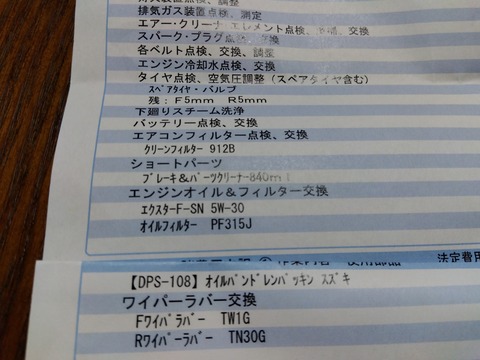 排気ガス装置点検、測定
エアー・クリーナ・エレメント点検、清掃、交換
スパーク・プラグ点検、交換
各ベルト点検、交換、調整
エンジン冷却水点検、交換
タイヤ点検、空気圧調整(スペアタイヤ含む)
スペアタイヤ・バルブ
残:F5mm R5mm
下廻りスチーム洗浄
バッテリー点検、交換
エアコンフィルター点検、交換
クリーンフィルター 912B
ショートパーツ
ブレーキ&パーツクリーナー840ml
エンジンオイル&フィルター交換
エクスターF-SN 5W-30
オイルフィルター PF315J
法定費用
【DPS-108】オイルパンドレンパッキン スズキ
ワイパーラバー交換
Fワイパーラバー TW1G
Rワイパーラバー TN30G